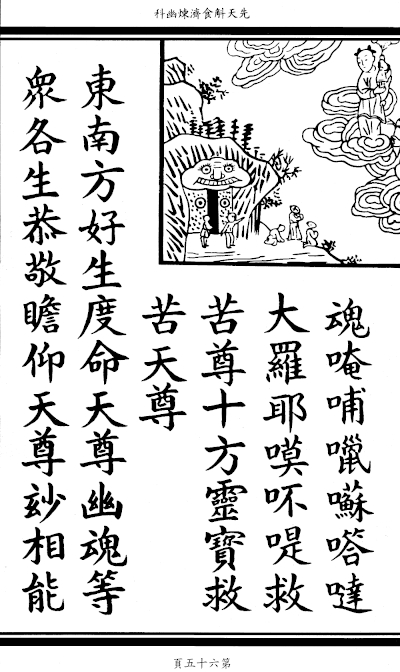 先天斛食濟煉幽科
魂唵哺囌嗒噠
大羅耶嗼吥救
苦尊十方靈寶救
苦天尊
東南方好生度命天尊幽魂等
眾各生恭敬瞻仰天尊玅相能
第六十五頁